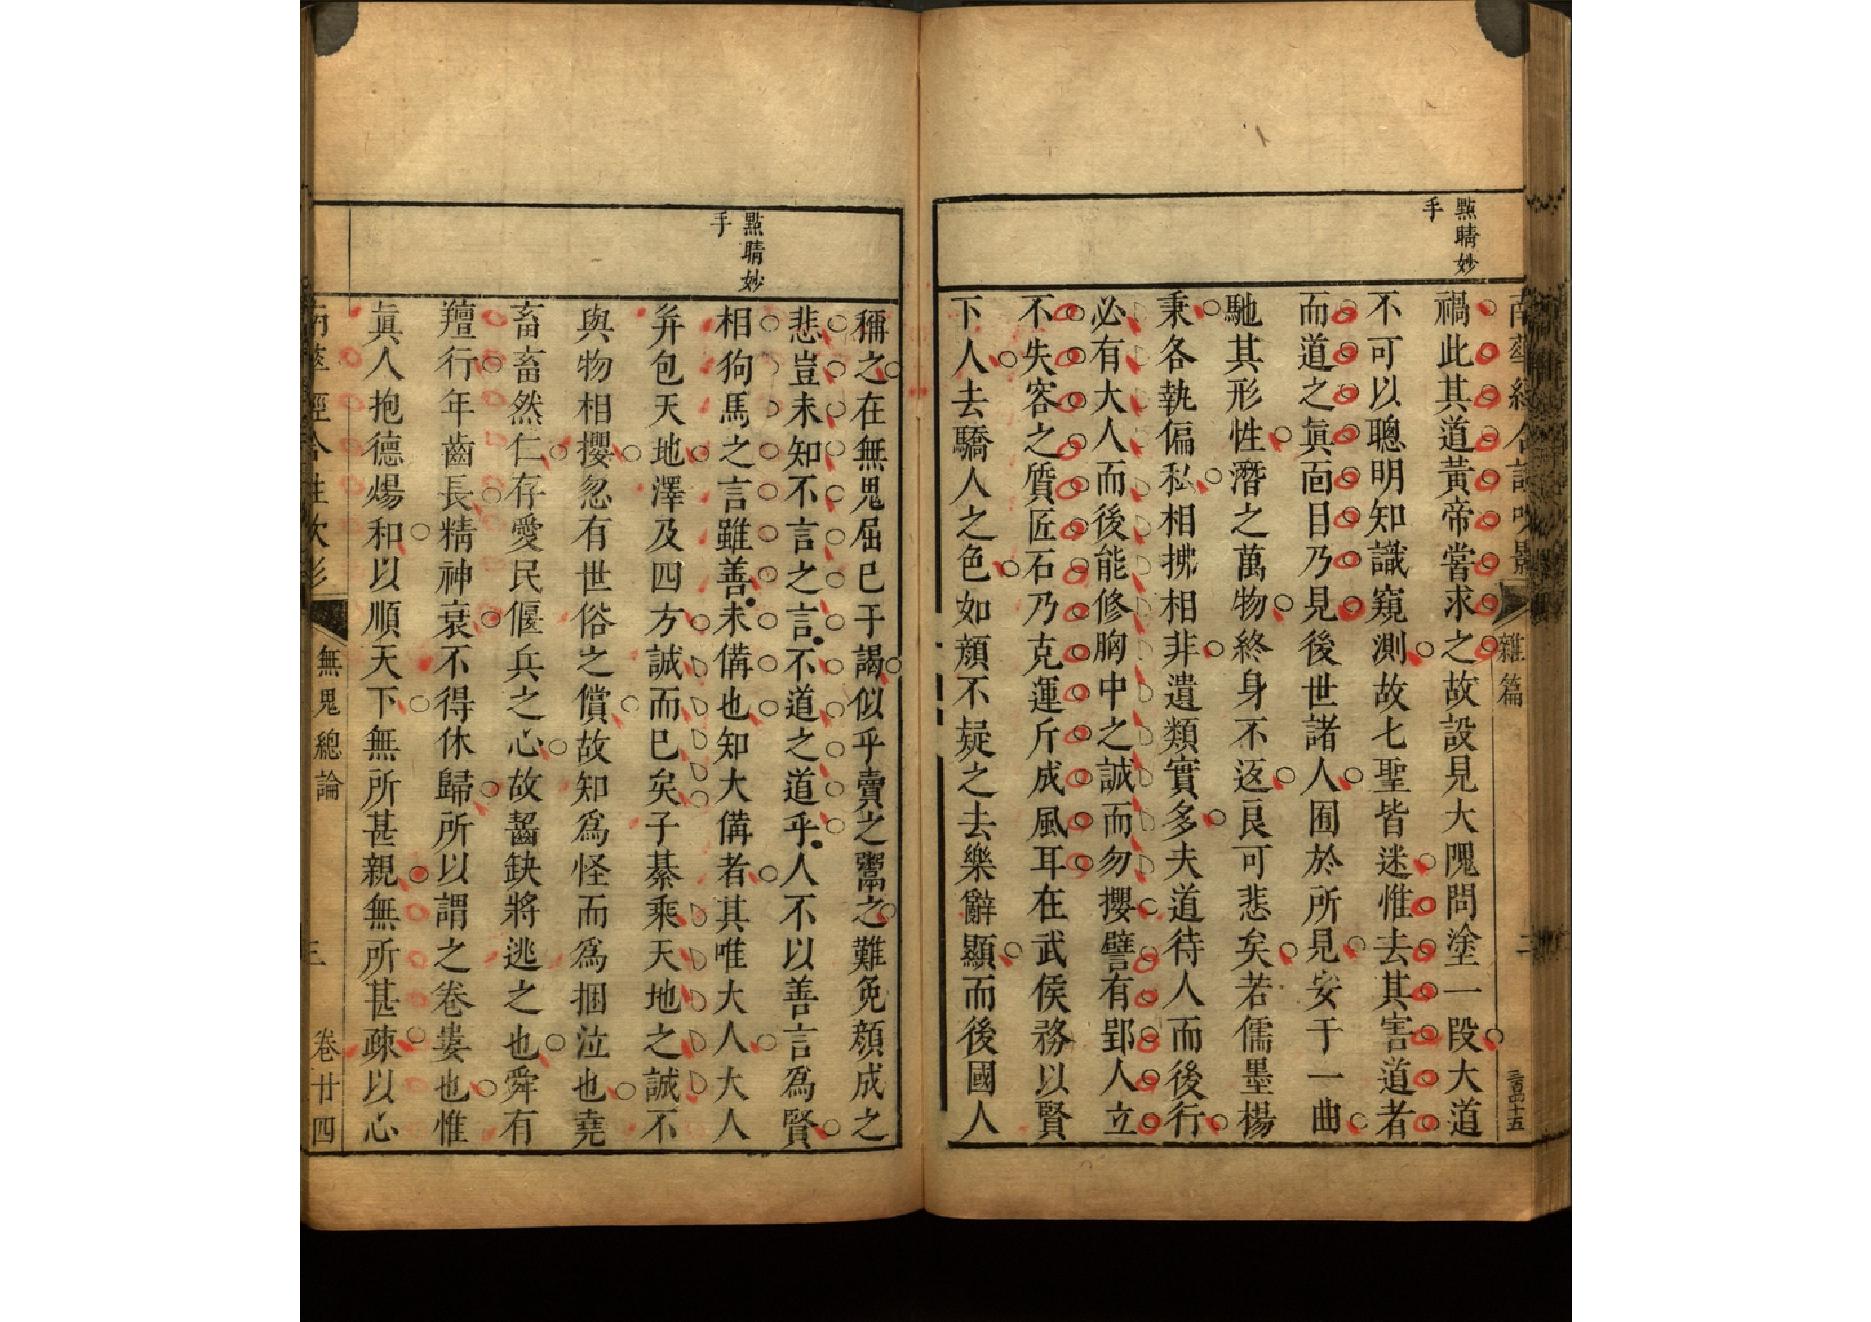 點睛妙
手
雜篇
二
禍此其道黃帝嘗求之故設見大隗問塗一段大道
不可以聰明知識窺測故七聖皆迷惟去其害道者
而道之眞面目乃見後世諸人囿於所見安于一曲
馳其形性潛之萬物終身不返良可悲矣若儒墨楊
秉各執偏私相拂相非遺類實多夫道待人而後行
必有大人而後能修胸中之誠而勿攖譬有郢人立
不失容之質匠石乃克運斤成風耳在武侯務以賢
下人去驕人之色如顏不疑之去樂辭顯而後國人
點睛妙
手
稱之在無鬼屈已于謁似乎賣之鬻之難免顏成之
悲豈未知不言之言不道之道乎人不以善言爲賢
相狗馬之言雖善未備也知大備者其唯大人大人
并包天地澤及四方誠而已矣子綦乘天地之誠不
與物相攖忽有世俗之償故知爲怪而爲捆泣也堯
畜畜然仁存愛民偃兵之心故齧缺將逃之也舜有
羶行年齒長精神衰不得休歸所以謂之卷婁也惟
眞人抱德煬和以順天下無所甚親無所甚疎以心
無鬼總論
三
卷廿四